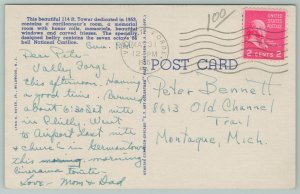 This beautiful 114 ft. Tower dedicated in 1953,
contains a carillonneur's room, a memorial
room with honor rolls, mosaicals, beautiful
windows and carved frieses. The specially
designed belfry contains the seven octave 56
bell National Carillon.
100
POST CARD
2 CENTS 2
Dear Pete
Valley Forge
this afternoon. Having
a good time. Burned
about 6:30 Sat nite
in Philly, Went
to Airport last nite
& church in Germantown
this morning
Cinerama tonite.
Love - Mom & Dad
Peter Bennett
8613 Old Channel
Trail
Montague, Mich.